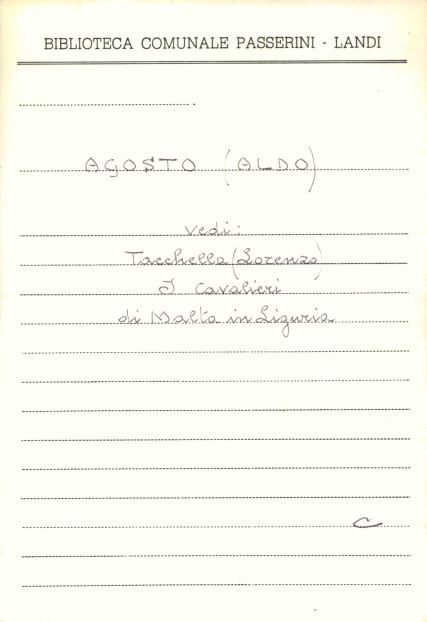 BIBLIOTECA COMUNALE PASSERINI - LANDI
AGOSTO (ALDO)
vedi:
Tacchella (Lorenzo)
I Cavalieri
di Malta in Liguria
C